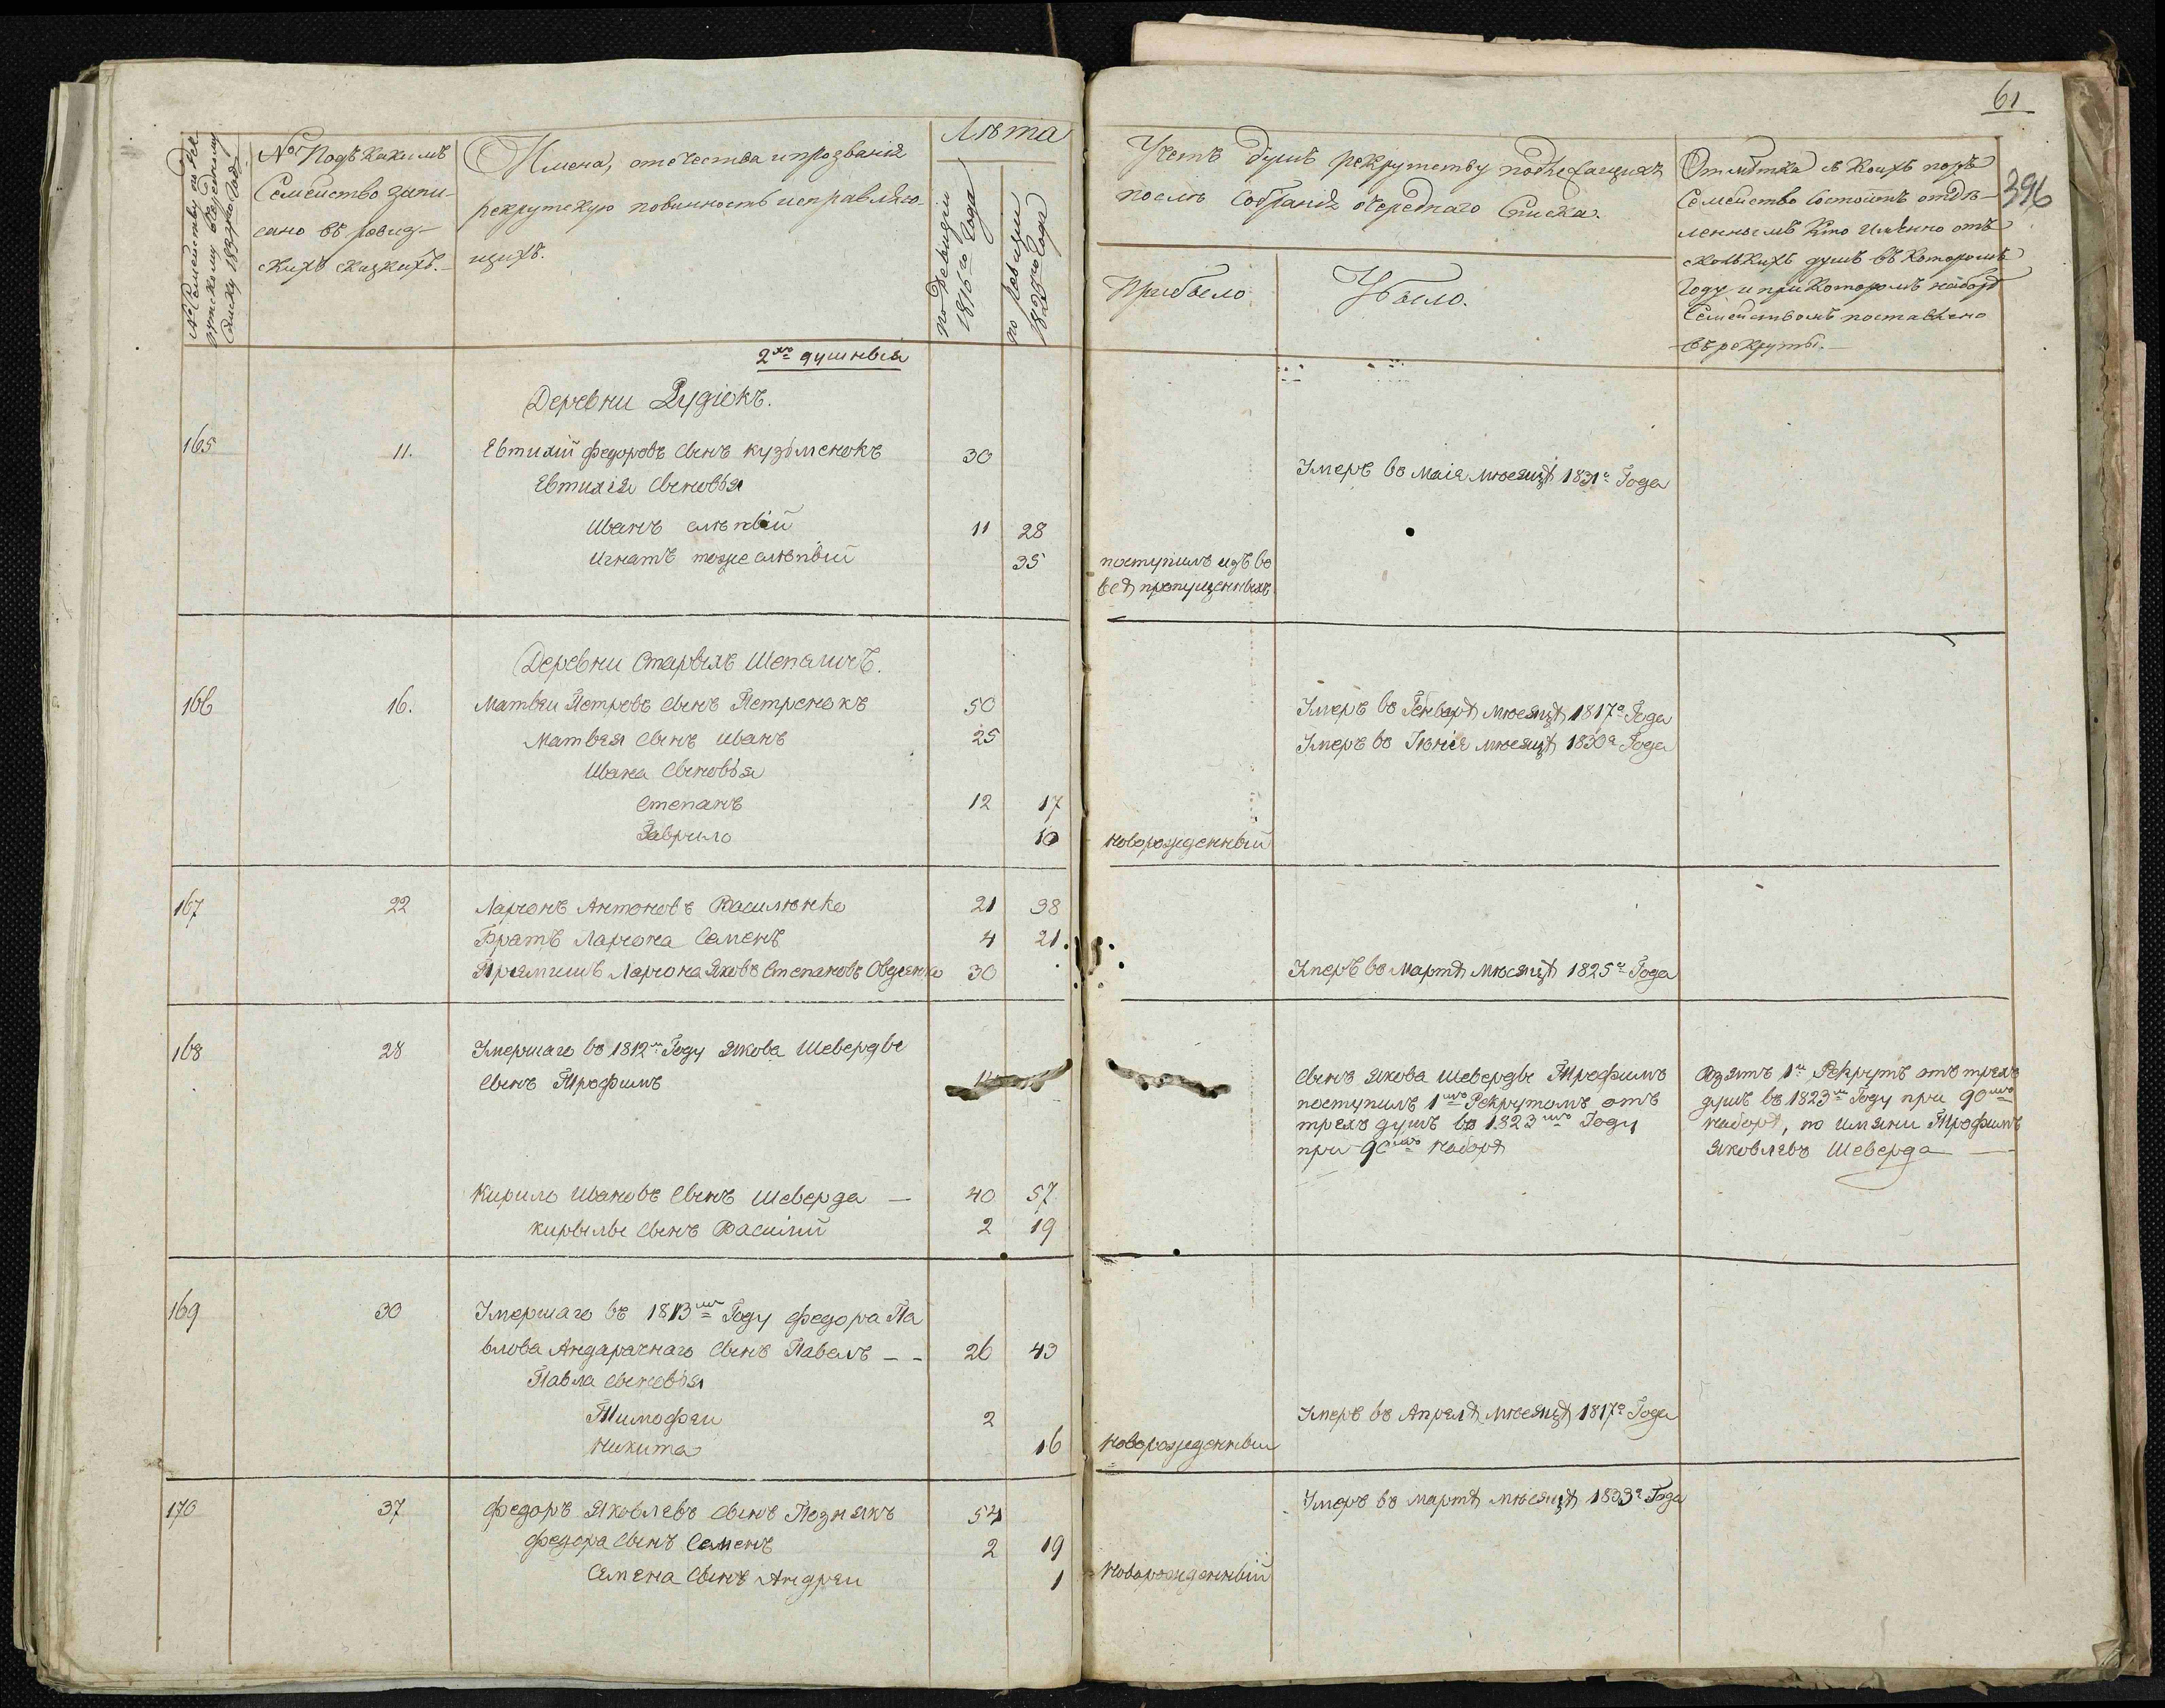 61
396
№ Семейству по рек-
рутскому очередному
списку 1832го Года
№ Подъ какимъ
Семейство запи-
сано въ ревиз-
скихъ сказкахъ.
Имена, отечества и прозванія
рекрутскую повинность исправляю-
щихъ.
Лѣта
по ревизіи
1816го Года
по ревизіи
Года
Учетъ душъ рекрутству подлежащихъ
послѣ собранія очереднаго Списка.
Прибыло
Убыло.
Отмѣтка съ коихъ поръ
Семейство состоитъ отдѣ-
леннымъ Кто имѣнно отъ
сколькихъ душъ въ которомъ
Году и при которомъ наборѣ
Семействомъ поставлено
въ рекруты.
2хъ душныя
Деревни Рудіокъ.
165 11. Евтихій Федоровъ сынъ Кузьменокъ 30 Умеръ въ Маія мѣсяцѣ 1831г Года
Евтихія сыновья
Иванъ слѣпый 11 28
Игнатъ тоже слѣпый 35 поступилъ изъ во
все пропущенныхъ
Деревни Старыхъ Шепаличъ.
166 16. Матвѣи Петровъ сынъ Петренокъ 50 Умеръ въ Генварѣ мѣсяцѣ 1817г Года
Матвѣя сынъ Иванъ 25 Умеръ въ Іюнія мѣсяцѣ 1830г Года
Ивана сыновья
Степанъ 12 17
Гаврило 10 новорожденный
167 22 Ларіонъ Антоновъ Василѣнко 21 38
Братъ Ларіона Семенъ 4 21.
Прѣмишъ Ларіона Яковъ Степановъ Овдѣенко 30 Умеръ въ Мартѣ мѣсяцѣ 1825г Года
168 28 Умершаго въ 1812м Году Якова Шеверды
сынъ Трофимъ
сынъ Якова Шеверды Трофимъ
поступилъ 1мъ Рекрутомъ отъ
трехъ душъ въ 1823мъ Году
при 90мъ наборѣ
Взятъ 1й Рекрутъ отъ трехъ
душъ въ 1823м Году при 90мъ
наборѣ, по имѣни Трофимъ
Яковлевъ Шеверда
Кирило Ивановъ сынъ Шеверда — 40 57
Кирылы сынъ Василій 2 19
169 30 Умершаго въ 1813мъ Году Федора Па
влова Андарачнаго сынъ Павелъ - - 26 43
Павла сыновья
Тимофѣи 2 Умеръ въ Апрелѣ мѣсяцѣ 1817г Года
Никита 16 новорожденныи
170 37 Федоръ Яковлевъ сынъ Познякъ 54 Умеръ въ мартѣ мѣсяцѣ 1833г Года
Федора сынъ Семенъ 2 19
Семена сынъ Андрѣи 1 новорожденный